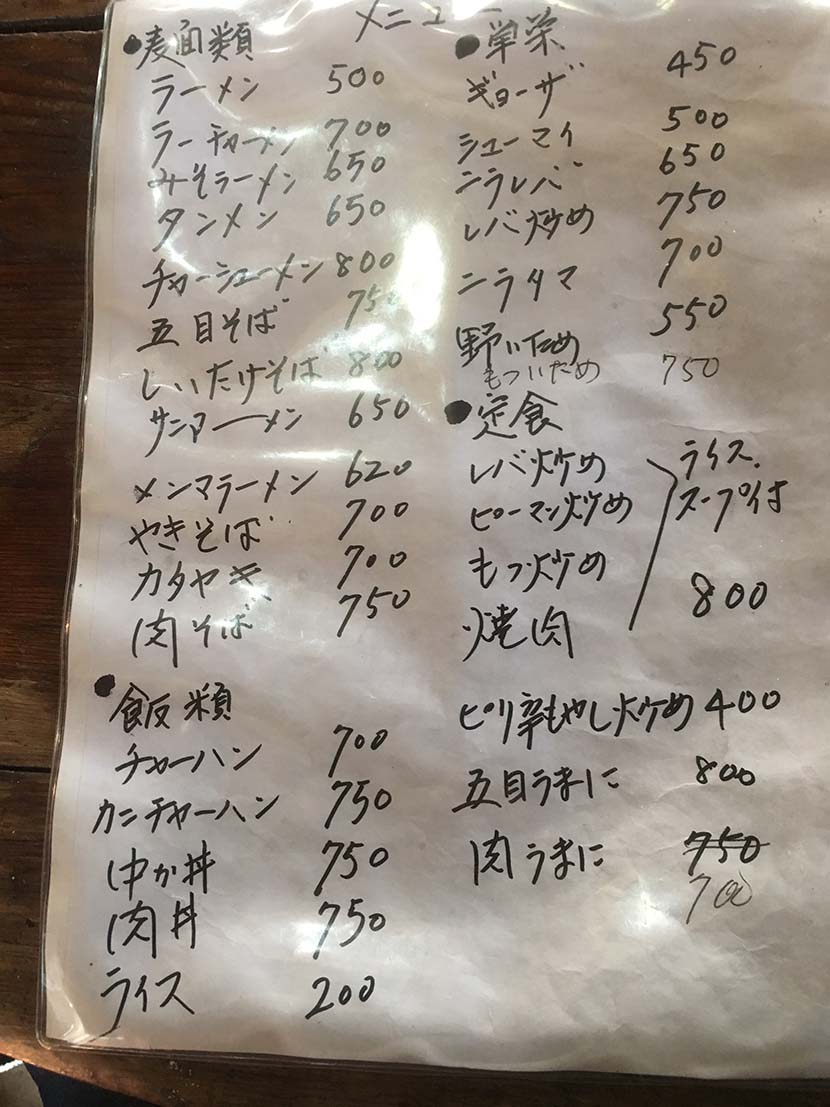 メニュー
●麦面類
ラーメン 500
ラーチャーメン 700
みそラーメン 650
タンメン 650
チャーシューメン 800
五目そば 750
しいたけそば 800
サンマーメン 650
メンマラーメン 620
やきそば 700
カタヤキ 700
肉そば 750
●飯類
チャーハン 700
カニチャーハン 750
中か丼 750
肉丼 750
ライス 200
●単菜
ギョーザ 450
シューマイ 500
ニラレバ 650
レバ炒め 750
ニラタマ 700
野いため 550
もついため 750
●定食
レバ炒め
ピーマン炒め
もつ炒め
焼肉
ライス、
スープ付
800
ピリ辛もやし炒め 400
五目うまに 800
肉うまに 750
700